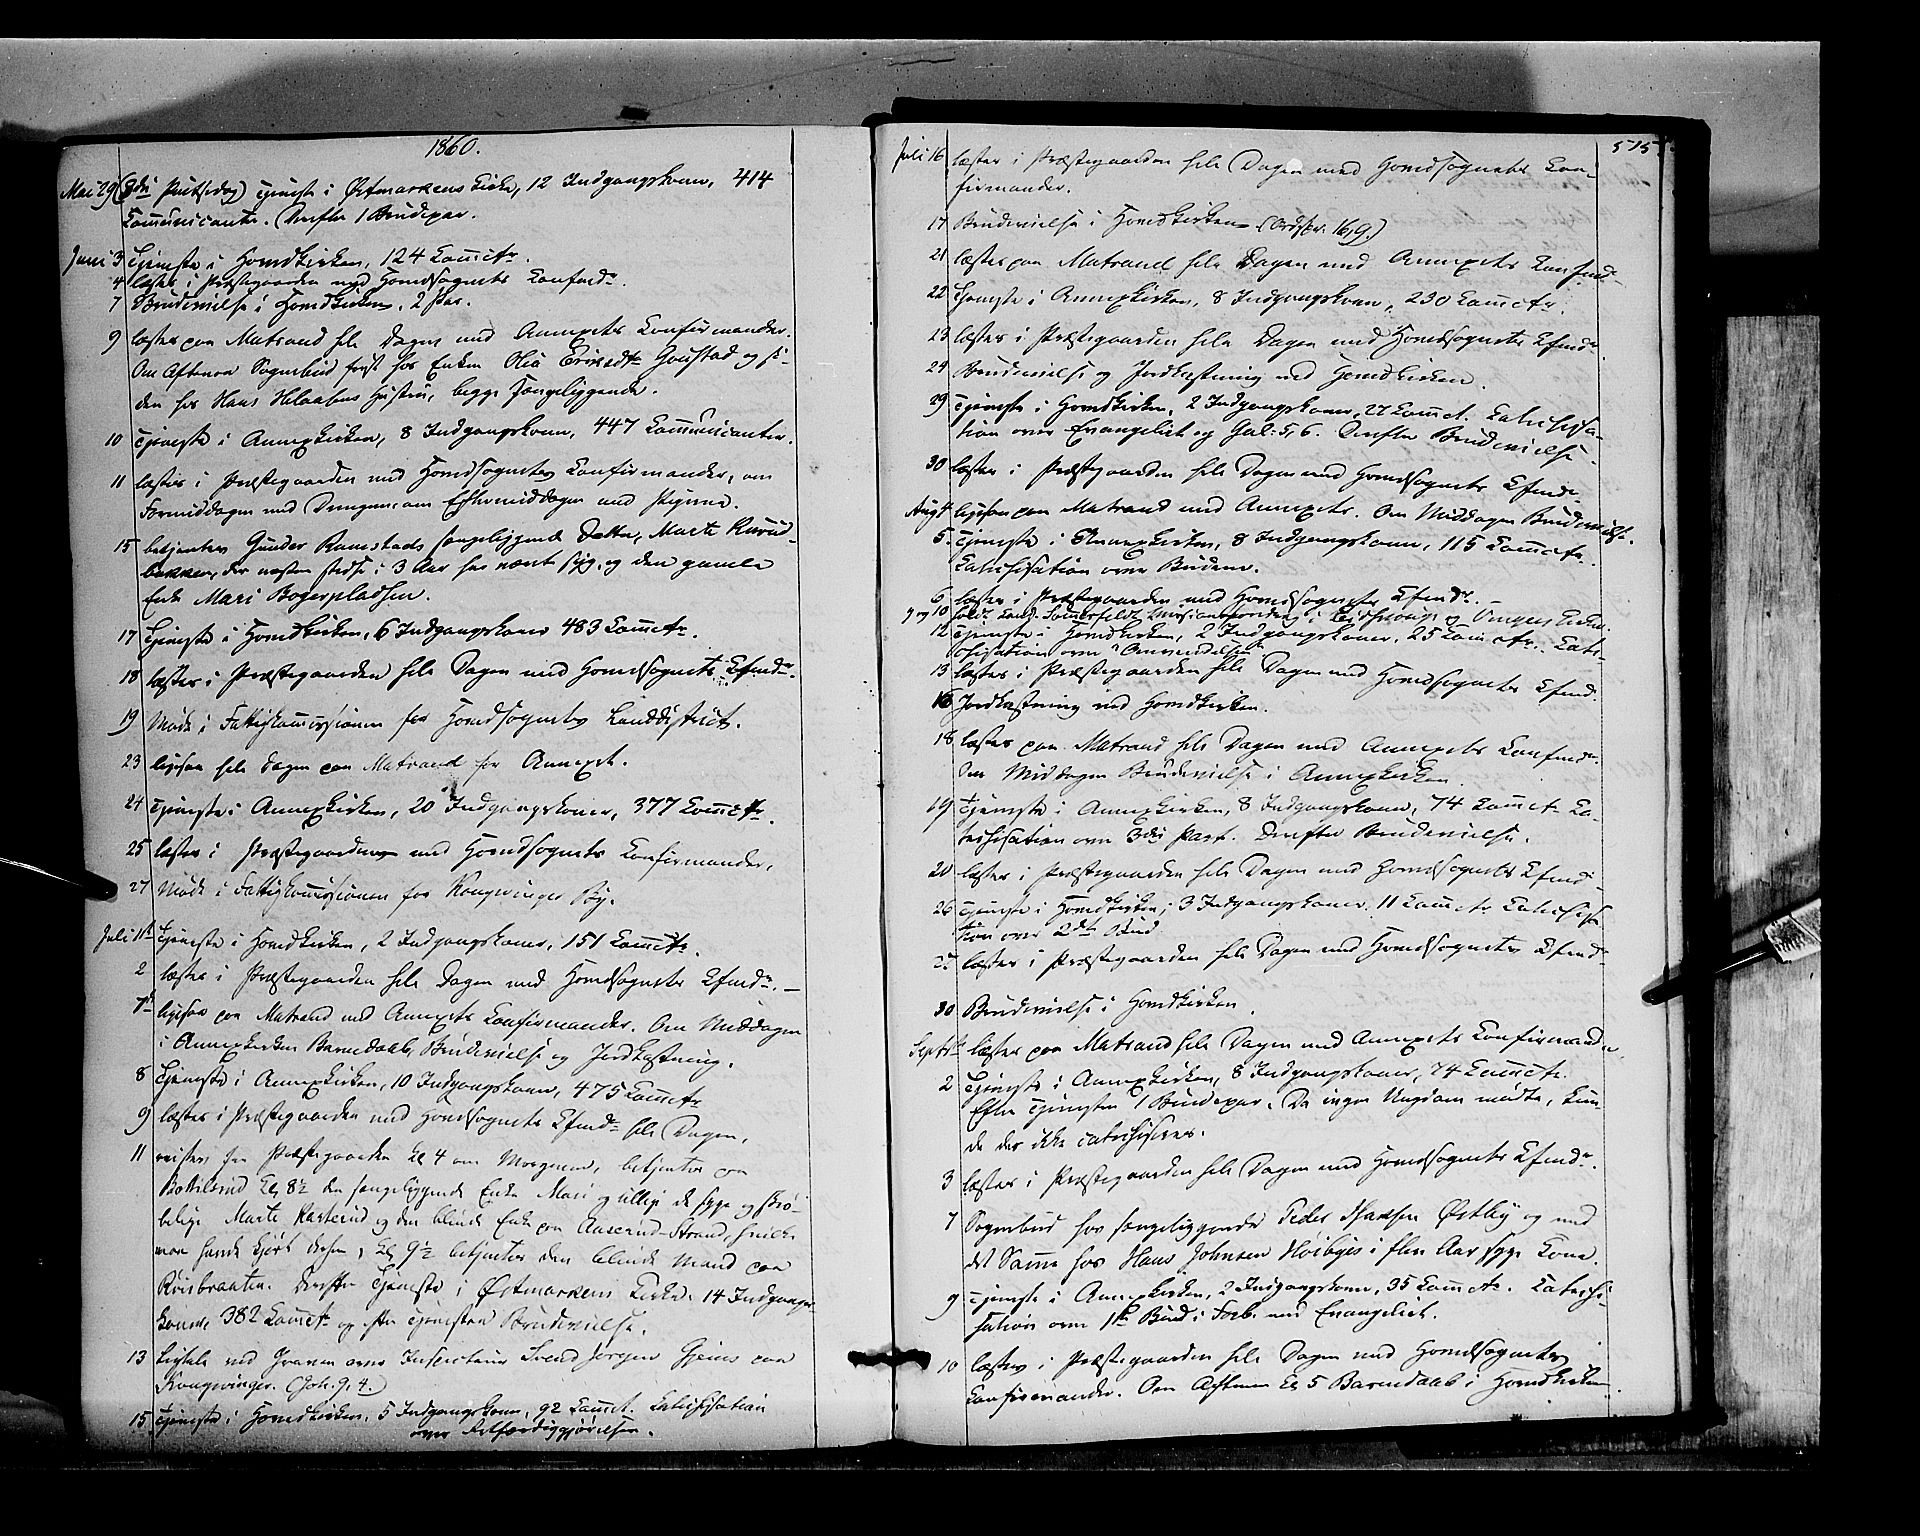 1860.
Mai 29 (3die Pintsedag) Tjeneste i Østmarkens Kirke, 12 Indgangskoner, 414
Communicanter. Derefter 1 Brudepar.
Juni 3 Tjeneste i Hovedkirken, 124 Commctr.
4 læste i Præstegaarden med Hovedsognets Confmdr.
7 Brudevielse i Hovedkirken, 2 Par.
9 læste paa Matrand hele Dagen med Annexets Confirmander.
Om Aftenen Sognebud først hos Enken Olia Eriksdtr Gaustad og si-
den hos Hans Hustru, begge sengeliggende.
10 Tjeneste i Annexkirken, 8 Indgangskoner, 447 Communicanter.
11 læste i Præstegaarden med Hovedsognets Confirmander, om
Formiddagen med Drengene, om Eftermiddagen med Pigerne.
15 betjentes Gunder Ramstads sengeliggende Datter, Marte
bakken, der næsten stedse i 3 Aar har været syg, og den gamle
Enke Mari Bogerpladsen.
17 Tjeneste i Hovedkirken, 6 Indgangskoner 483 Commctr.
18 læste i Præstegaarden hele Dagen med Hovedsognets Cfmdr.
19 Møde i Fattigkommissionen for Hovedsognets Landdistrict.
23 ligesaa hele Dagen paa Matrand for Annexet.
24 Tjeneste i Annexkirken, 20 Indgangskoner, 377 Commctr.
25 læste i Præstegaarden med Hovedsognets Confirmander.
27 Møde i Fattigkommissionen for Kongsvinger By.
Juli 1ste Tjeneste i Hovedkirken, 2 Indgangskoner, 151 Commctr.
2 læste i Præstegaarden hele Dagen med Hovedsognets Cfmdr. —
7de ligesaa paa Matrand med Annexets Confirmander. Om Middagen
i Annexkirken Barnedaab, Brudevielse og Jordkastning.
8 Tjeneste i Annexkirken, 10 Indgangskoner, 475 Commctr
9 læste i Præstegaarden med Hovedsognets Cfmdr hele Dagen.
11 reiste fra Præstegaarden Kl 4 om Morgenen, betjente paa
Kl 8½ den sengeliggende Enke Mari og tillige de syge og skrø-
belige Marte og den blinde Enke paa Aaserud-Strand, hvilke
man havde kjørt dertil, Kl 9½ betjentes den blinde Mand paa
Derefter Tjeneste i Østmarkens Kirke. 14 Indgangs-
koner. 382 Commctr og efter Tjenesten Brudevielse.
13 Ligtale ved Graven over Inspecteur Svend Jørgen paa
Kongsvinger. (Joh. 9, 4.)
15 Tjeneste i Hovedkirken, 5 Indgangskoner, 92 Commct. Catechisation
over Retfærdiggjørelsen.
515
Juli 16 læste i Præstegaarden hele Dagen med Hovedsognets Con-
firmander.
17 Brudevielse i Hovedkirken (Ordspr. 16, 9.)
21 læste paa Matrand hele Dagen med Annexets Confmdr.
22 Tjeneste i Annexkirken, 8 Indgangskoner, 230 Commctr.
23 læste i Præstegaarden hele Dagen med Hovedsognets Cfmdr.
24 Brudevielse og Jordkastning ved Hovedkirken.
29 Tjeneste i Hovedkirken, 2 Indgangskoner, 27 Commct. Catechisa-
tion over Evangeliet og Gal: 5, 6. Derefter Brudevielse.
30 læste i Præstegaarden hele Dagen med Hovedsognets Cfmdr.
Aug 4 ligesaa paa Matrand med Annexets. Om Middagen Brudevielse.
5 Tjeneste i Annexkirken, 8 Indgangskoner, 115 Commctr.
Catechisation over Budene.
6 læste i Præstegaarden med Hovedsognets Cfmdr. —
9 og 10 holdt Cand. Missionsforedrag i og Vinger Kirke.
12 Tjeneste i Hovedkirken, 2 Indgangskoner, 25 Commctr. Cate-
chisation over "Omvendelsen"
13 læste i Præstegaarden hele Dagen med Hovedsognets Cfmdr.
16 Jordkastning ved Hovedkirken.
18 læste paa Matrand hele Dagen med Annexets Confmdr.
Om Middagen Brudevielse i Annexkirken
19 Tjeneste i Annexkirken, 8 Indgangskoner, 74 Commctr Ca-
techisation over 3die Part. Derefter Brudevielse.
20 læste i Præstegaarden hele Dagen med Hovedsognets Cfmdr.
26 Tjeneste i Hovedkirken, 3 Indgangskoner. 11 Commctr Catechisa-
tion over 2det Bud
27 læste i Præstegaarden hele Dagen med Hovedsognets Cfmdr.
30 Brudevielse i Hovedkirken.
Septbr 1 læste paa Matrand hele Dagen med Annexets Confirmander.
2 Tjeneste i Annexkirken, 8 Indgangskoner, 74 Commctr.
Efter Tjenesten 1 Brudepar. Da ingen Ungdom mødte, kun-
de der ikke catechiseres.
3 læste i Præstegaarden hele Dagen med Hovedsognets Cfmdr.
7 Sognebud hos sengeliggende Peder Hansen Østby og med
det Samme hos Hans Johnsen Høibyes i flere Aar syge Kone.
9 Tjeneste i Annexkirken, 2 Indgangskoner, 35 Commctr. Catechi-
sation over 1ste Bud i Forb. med Evangeliet.
10 læste i Præstegaarden hele Dagen med Hovedsognets
Confirmander. Om Aftenen Kl 5 Barnedaab i Hovedkirken.